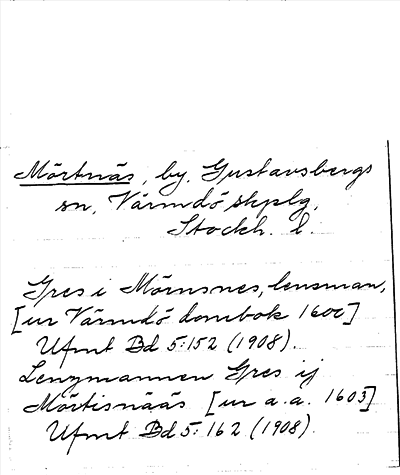 Mörtnäs, by, Gustavsbergs
sn, Värmdö skplg,
Stockh. l.
Gres i Mörnsnes, lensman,
[ur Värmdö dombok 1600]
Ufmt Bd 5:152 (1908).
Lenzmannen Gres ij
Mörtisnääs [ur a.a. 1603]
Ufmt Bd 5:162 (1908).